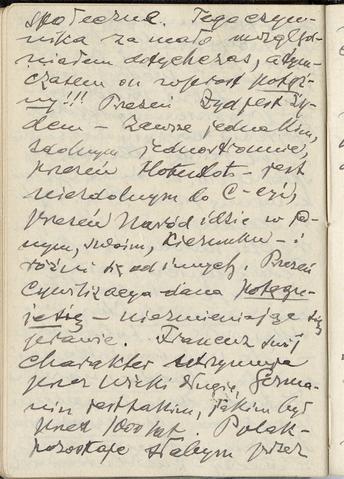 społeczne. Tego czyn-
nika za mało uwzględ-
niałem dotychczas, a tym-
czasem on wprost potęż-
ny!!! Przeń Żyd jest Ży-
dem – zawsze jednakim,
zdolnym jednostronnie,
przezeń Hotentot – jest
niezdolnym do C-cyi,
przezeń Naród idzie w 
swoim, kierunku – i
różni się od innych. Przezeń
cywilizacya dana potęgu-
je się – niezmieniając się
prawie. Francuz swój
charakter utrzymuje
przez wieki długie, Germa-
nin jest takim, jakim był
przed 1000 lat. Polak –
pozostaje słabym przez